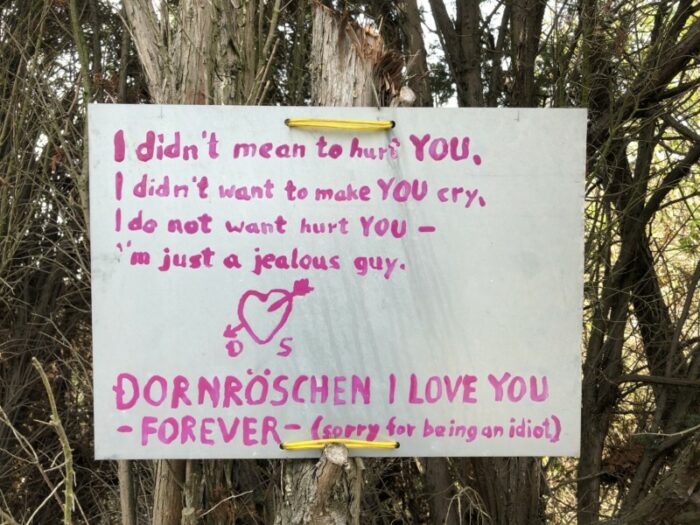 I didn't mean to hurt YOU.
I didn't want to make YOU cry.
I do not want hurt YOU –
I'm just a jealous guy.
D S
DORNRÖSCHEN I LOVE YOU
- FOREVER - (sorry for being an idiot)